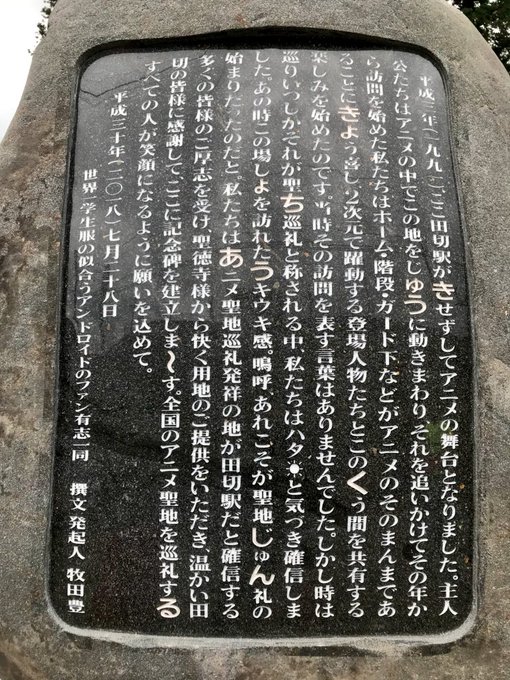 平成三年(一九九一)、ここ田切駅がきせずしてアニメの舞台となりました。主人
公たちはアニメの中でこの地をじゅうに動きまわり、それを追いかけてその年か
ら訪問を始めた私たちはホーム・階段・ガード下などがアニメのそのまんまであ
ることにきょう喜し、2次元で躍動する登場人物たちとこのくう間を共有する
楽しみを始めたのです。当時その訪問を表す言葉はありませんでした。しかし時は
巡りいつしか、それが聖ち巡礼と称される中、私たちはハタ☀と気づき確信しま
した。あの時この場しょを訪れたうキウキ感。嗚呼、あれこそが聖地じゅん礼の
始まりだったのだと。私たちはあニメ聖地巡礼発祥の地が田切駅だと確信する
多くの皆様のご厚志を受け、聖徳寺様から快く用地のご提供をいただき、温かい田
切の皆様に感謝して、ここに記念碑を建立しま〜す。全国のアニメ聖地を巡礼する
すべての人が笑顔になるように願いを込めて。
平成三十年(二〇一八)七月二十八日
世界一学生服の似合うアンドロイドのファン有志一同 撰文 発起人 牧田豊